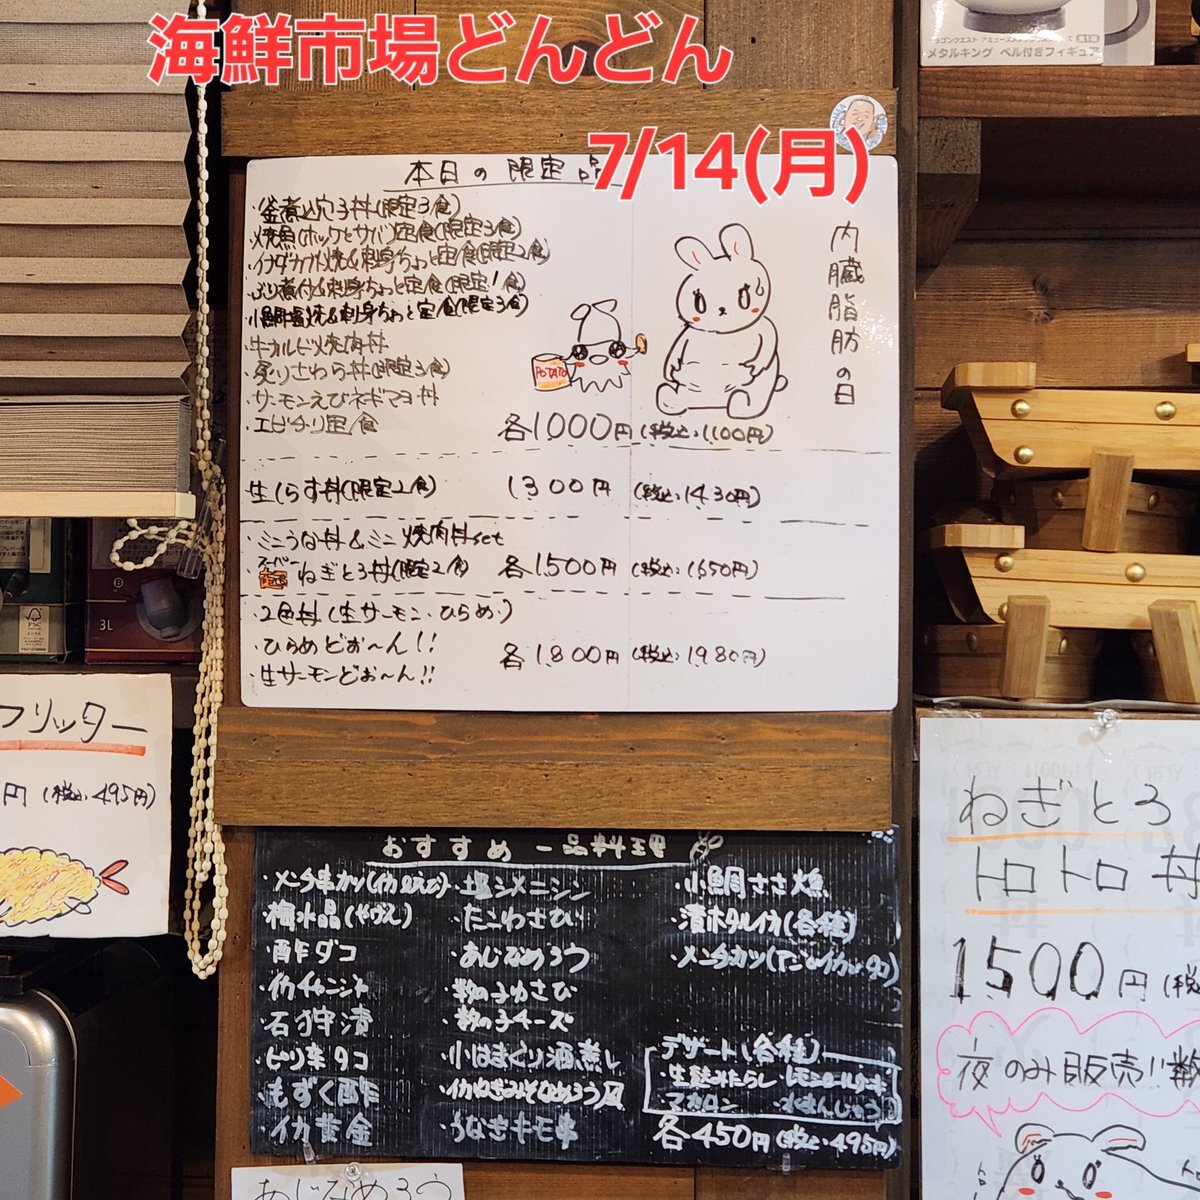 海鮮市場どんどん
7/14(月)
メタルキング ベル付きフィギュア
本日の限定品
・釜煮込穴子丼(限定3食)
・焼魚(ホッケとサバ)定食(限定3食)
焼&刺身ちょっと定食(限定2食)
・ぶり煮付&刺身ちょっと定食(限定1食)
・小鯛塩焼&刺身ちょっと定食(限定3食)
・牛カルビ焼肉丼
・炙りさわら丼(限定3食)
・サーモンえびネギマヨ丼
・エビチリ定食
各1000円(税込:1100円)
内臓脂肪の日
POTATO
生しらす丼(限定2食) 1300円 (税込:1430円)
・ミニうな丼&ミニ焼肉丼set
・スーパー ねぎとろ丼(限定2食) 各1500円 (税込:1650円)
・2色丼(生サーモン・ひらめ・)
・ひらめどお〜ん!!
・生サーモンどお〜ん!!
各1800円(税込:1980円)
フリッター
円(税込:495円)
おすすめ一品料理
・梅水晶
・酢ダコ
・石狩漬
・ピリ辛タコ
・もずく酢
・イカ黄金
・塩〆ニシン
・たこわさび
・あじなめろう
・数の子わさび
・数の子チーズ
・小はまぐり酒蒸し
・うなぎキモ串
・小鯛ささ漬
・漬ホタルイカ(各種)
デザート(各種)
・生麩みたらし
・マカロン
・水まんじゅう
各450円(税込:495円)
ねぎとろ
トロトロ丼
1500円(税込
夜のみ販売!!
あじなめろう
3L
FSC